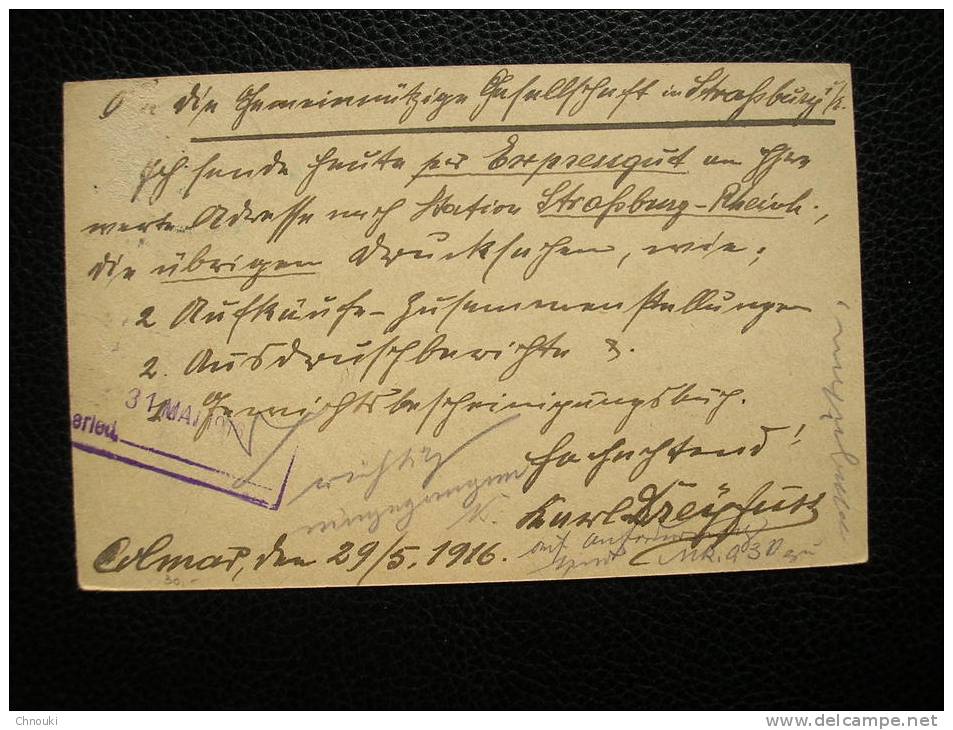 die Gemeinnützige Gesellschaft in Straßburg i/E.
Ich sende heute per Expressgut an Ihre
werte Adresse nach Station Straßburg-Rheinh.,
die übrigen Drucksachen, wie:
2 Aufkäufe-Zusammenstellungen
2. Ausdruschberichte &.
1 Gewichtsbescheinigungsbuch.
31 MAI 1916
erled.
richtig
eingegangen
Hochachtend!
Karl Dreyfuss
Colmar, den 29/5. 1916.
auf Anforderung
30.-
Chnouki
www.delcampe.net